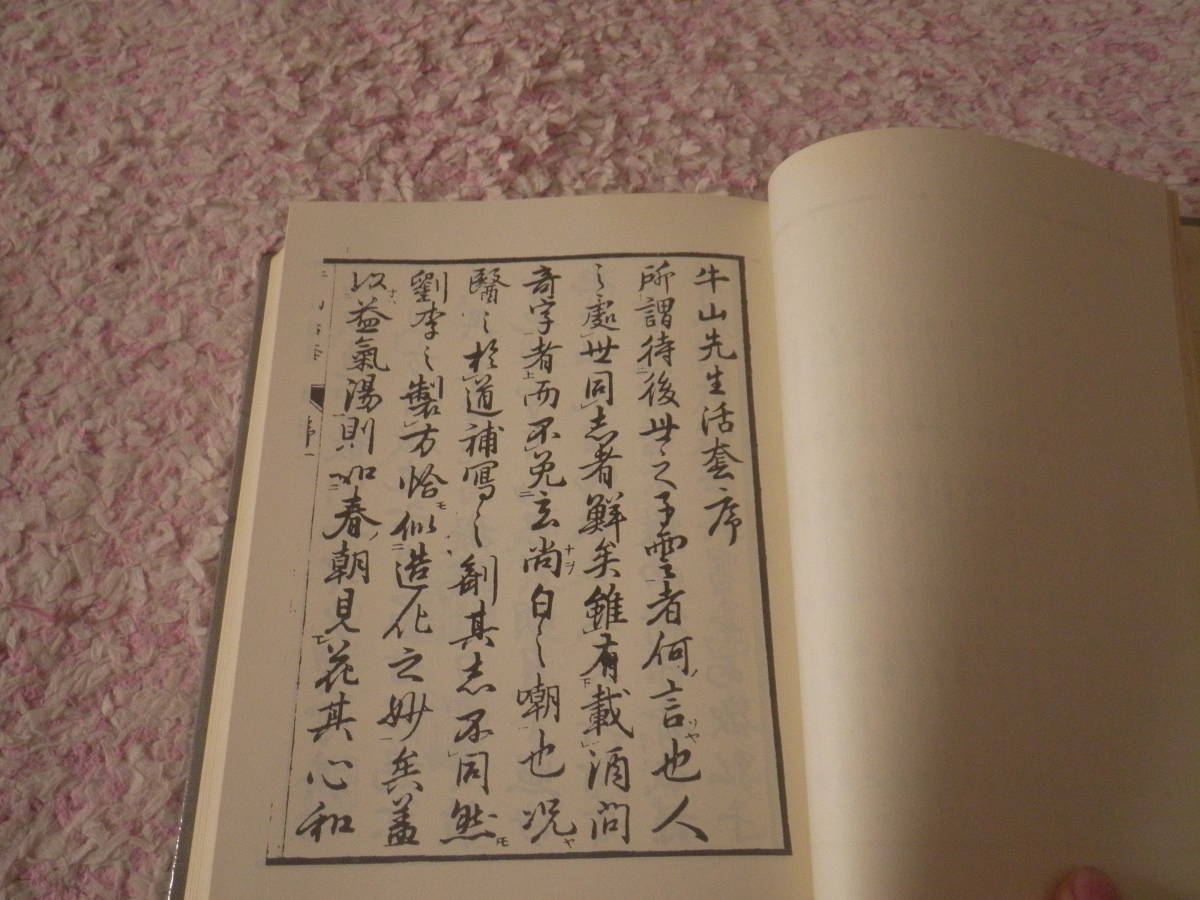 牛山先生活套序
所謂待後世之子雲者何言也人
之處世同志者鮮矣雖有載酒問
奇字者而不免玄尚白之嘲也况
醫之於道補寫之劑其志不同然
劉李之製方恰似造化之妙矣蓋
以益氣湯則如春朝見花其心和